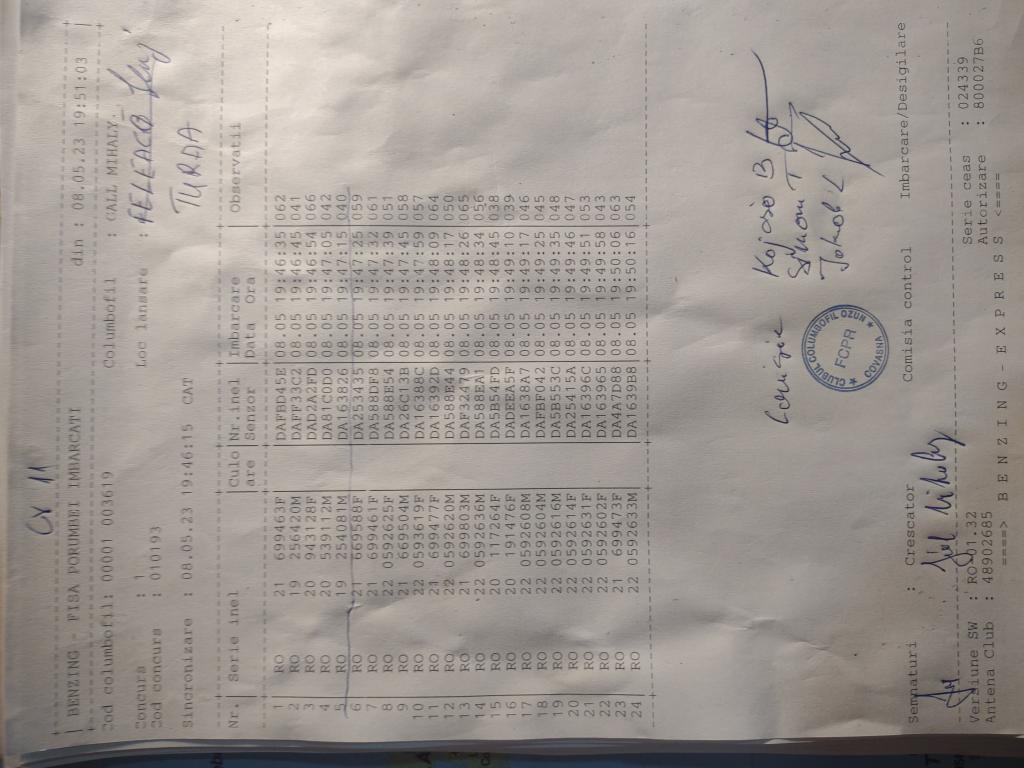 CV 11
BENZING - FISA PORUMBEI IMBARCATI din : 08.05.23 19:51:03
Cod columbofil: 00001 003619 Columbofil : GAL MIHALY.
Concurs : 1 Loc lansare : FELEACU
Cod concurs : 010193 TURDA
Sincronizare : 08.05.23 19:46:15 CAT
Nr. Serie inel Culo Nr.inel Imbarcare Observatii
are Senzor Data Ora
1 RO 21 699463F DAFBD45E 08.05 19:46:35 062
2 RO 19 256420M DAFF33C2 08.05 19:46:45 041
3 RO 20 943128F DAD2A2FD 08.05 19:46:54 066
4 RO 20 539112M DAB1CDD0 08.05 19:47:05 042
5 RO 19 254081M DA163B26 08.05 19:47:15 040
6 RO 21 669588F DA253435 08.05 19:47:25 059
7 RO 21 699461F DA588DF8 08.05 19:47:32 061
8 RO 22 0592625F DA588E54 08.05 19:47:39 051
9 RO 21 669504M DA26C13B 08.05 19:47:45 058
10 RO 22 0593619F DA16388C 08.05 19:47:59 057
11 RO 21 699477F DA16392D 08.05 19:48:09 064
12 RO 22 0592620M DA588B44 08.05 19:48:17 050
13 RO 21 699803M DAF32479 08.05 19:48:26 065
14 RO 22 0592636M DA588EA1 08.05 19:48:34 056
15 RO 20 117264F DA5B54FD 08.05 19:48:45 038
16 RO 20 191476F DADEEA5F 08.05 19:49:10 039
17 RO 22 0592608M DA1638A7 08.05 19:49:17 046
18 RO 22 0592604M DAFBF042 08.05 19:49:25 045
19 RO 22 0592616M DA5B553C 08.05 19:49:35 048
20 RO 22 0592614F DA25415A 08.05 19:49:46 047
21 RO 22 0592631F DA16396C 08.05 19:49:51 053
22 RO 22 0592602F DA163965 08.05 19:49:58 043
23 RO 21 699473F DA4A7D88 08.05 19:50:06 063
24 RO 22 0592633M DA1639B8 08.05 19:50:16 054
Comisie Kojoso B
Simon T
Jakob L
CLUBUL COLUMBOFIL OZUN
FCPR
COVASNA
Semnaturi : Crescator Comisia control Imbarcare/Desigilare
Gál Mihály
Versiune SW : RO-01.32 Serie ceas : 024339
Antena Club : 48902685 Autorizare : 800027B6
====> B E N Z I N G - E X P R E S S <====